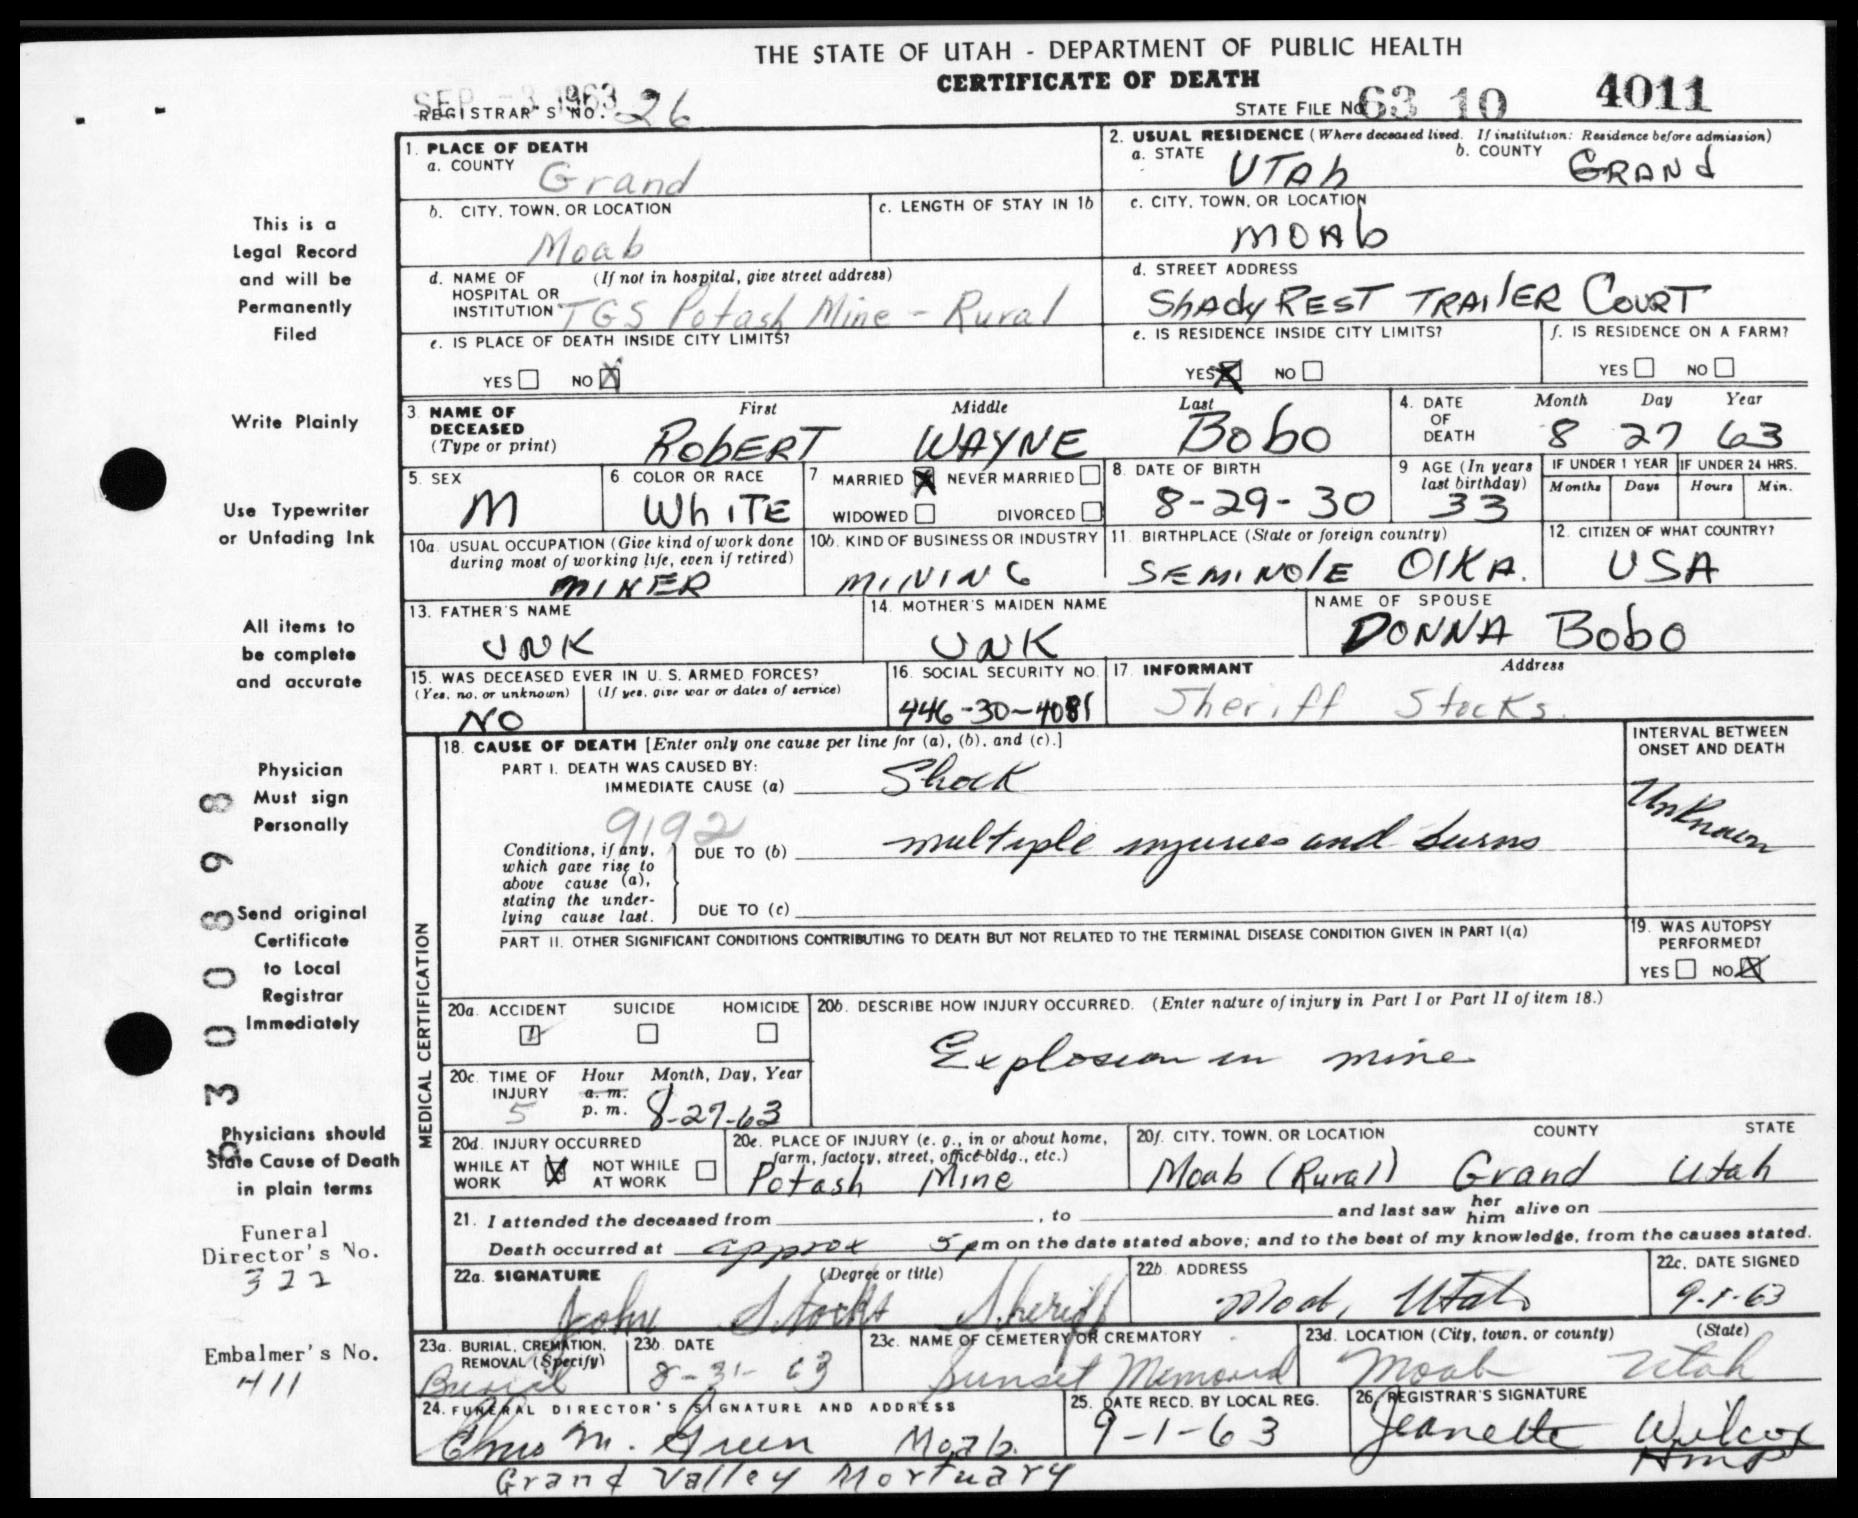 THE STATE OF UTAH - DEPARTMENT OF PUBLIC HEALTH
CERTIFICATE OF DEATH
SEP -3 1963
REGISTRAR'S NO. 26
STATE FILE NO. 63 10 4011
1. PLACE OF DEATH
a. COUNTY Grand
2. USUAL RESIDENCE (Where deceased lived. If institution: Residence before admission)
a. STATE UTAh b. COUNTY GRANd
b. CITY, TOWN, OR LOCATION Moab
c. LENGTH OF STAY IN 1b
c. CITY, TOWN, OR LOCATION MOAb
d. NAME OF HOSPITAL OR INSTITUTION (If not in hospital, give street address) TGS Potash Mine - Rural
d. STREET ADDRESS ShAdy REST TRAILER COURT
e. IS PLACE OF DEATH INSIDE CITY LIMITS?
YES NO X
e. IS RESIDENCE INSIDE CITY LIMITS?
YES X NO
f. IS RESIDENCE ON A FARM?
YES NO
3. NAME OF DECEASED (Type or print)
First Middle Last
RobERT WAYNE Bobo
4. DATE OF DEATH
Month Day Year
8 27 63
5. SEX M
6 COLOR OR RACE WhITE
7 MARRIED X NEVER MARRIED
WIDOWED DIVORCED
8. DATE OF BIRTH 8-29-30
9 AGE (In years last birthday) 33
IF UNDER 1 YEAR Months Days
IF UNDER 24 HRS. Hours Min.
10a. USUAL OCCUPATION (Give kind of work done during most of working life, even if retired) MINER
10b. KIND OF BUSINESS OR INDUSTRY MINING
11. BIRTHPLACE (State or foreign country) SEMINOlE OlKA.
12. CITIZEN OF WHAT COUNTRY? USA
13. FATHER'S NAME UNK
14. MOTHER'S MAIDEN NAME UNK
NAME OF SPOUSE DONNA Bobo
15. WAS DECEASED EVER IN U. S. ARMED FORCES?
(Yes, no, or unknown) (If yes, give war or dates of service)
NO
16. SOCIAL SECURITY NO. 446-30-4081
17. INFORMANT Address
Sheriff Stocks.
MEDICAL CERTIFICATION
18. CAUSE OF DEATH [Enter only one cause per line for (a), (b), and (c).]
PART I. DEATH WAS CAUSED BY:
IMMEDIATE CAUSE (a) Shock
INTERVAL BETWEEN ONSET AND DEATH
Unknown
9192
Conditions, if any, which gave rise to above cause (a), stating the underlying cause last.
DUE TO (b) multiple injuries and burns
DUE TO (c)
PART II. OTHER SIGNIFICANT CONDITIONS CONTRIBUTING TO DEATH BUT NOT RELATED TO THE TERMINAL DISEASE CONDITION GIVEN IN PART I(a)
19. WAS AUTOPSY PERFORMED?
YES NO X
20a. ACCIDENT SUICIDE HOMICIDE
20b. DESCRIBE HOW INJURY OCCURRED. (Enter nature of injury in Part I or Part II of item 18.)
Explosion in mine
20c. TIME OF INJURY Hour Month, Day, Year
5 a. m. p. m. 8-27-63
20d. INJURY OCCURRED
WHILE AT WORK X NOT WHILE AT WORK
20e. PLACE OF INJURY (e. g., in or about home, farm, factory, street, office bldg., etc.)
Potash Mine
20f. CITY, TOWN, OR LOCATION COUNTY STATE
Moab (Rural) Grand Utah
21. I attended the deceased from , to and last saw her him alive on
Death occurred at approx 5 pm on the date stated above; and to the best of my knowledge, from the causes stated.
22a. SIGNATURE (Degree or title)
John Stocks Sheriff
22b. ADDRESS Moab, Utah
22c. DATE SIGNED 9-1-63
23a. BURIAL, CREMATION, REMOVAL (Specify) Burial
23b. DATE 8-31-63
23c. NAME OF CEMETERY OR CREMATORY Sunset Memorial
23d. LOCATION (City, town, or county) (State)
Moab Utah
24. FUNERAL DIRECTOR'S SIGNATURE AND ADDRESS
M. Green Moab.
Grand Valley Mortuary
25. DATE RECD. BY LOCAL REG. 9-1-63
26. REGISTRAR'S SIGNATURE
Jeanette Wilcox
This is a
Legal Record
and will be
Permanently
Filed
Write Plainly
Use Typewriter
or Unfading Ink
All items to
be complete
and accurate
Physician
Must sign
Personally
Send original
Certificate
to Local
Registrar
Immediately
Physicians should
State Cause of Death
in plain terms
Funeral
Director's No.
322
Embalmer's No.
411